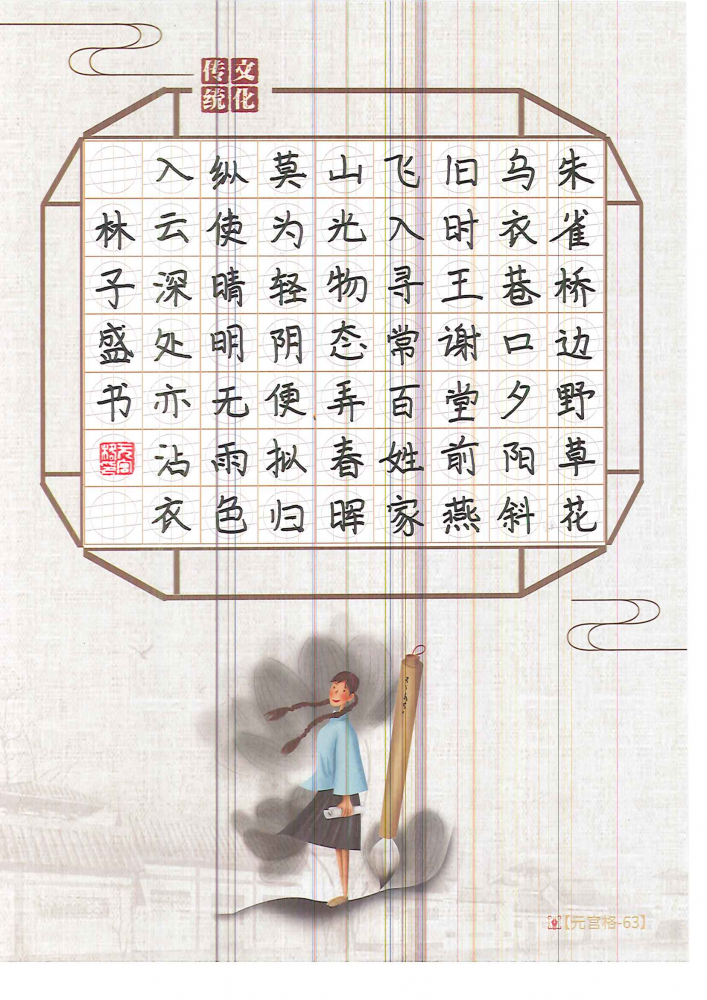 传统
文化
朱雀桥边野草花
乌衣巷口夕阳斜
旧时王谢堂前燕
飞入寻常百姓家
山光物态弄春晖
莫为轻阴便拟归
纵使晴明无雨色
入云深处亦沾衣
林子盛书
【元宫格-63】